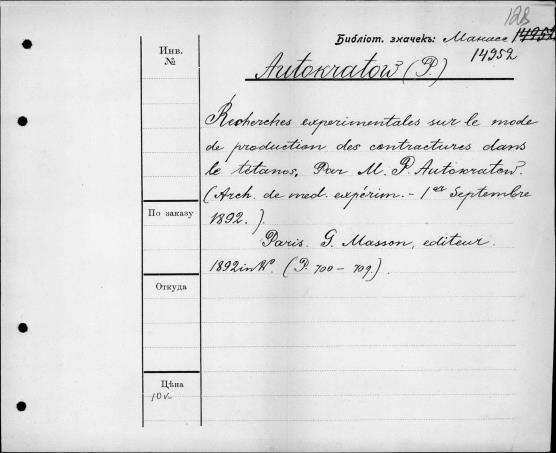 128
Библіот. значекъ: Манасс 14952
14952
Инв.
№
Autokratow (P.)
Recherches experimentales sur le mode
de production des contractures dans
le tétanos. Par M. P. Autokratow.
(Arch. de med. expérim. - 1er Septembre
1892.)
По заказу
Paris. G. Masson, editeur.
1892 in (P. 700 - 709.)
Откуда
Цѣна